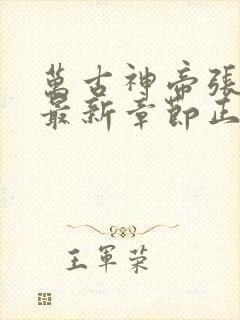 萬古神帝張
最新章節正
王軍榮